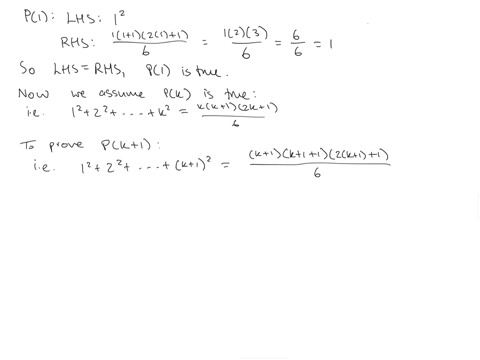 P(1): LHS: 1²
RHS: 1(1+1)(2(1)+1)/6 = 1(2)(3)/6 = 6/6 = 1
So LHS=RHS, P(1) is true.
Now we assume P(k) is true:
i.e. 1²+2²+...+k² = k(k+1)(2k+1)/6
To prove P(k+1):
i.e. 1²+2²+...+(k+1)² = (k+1)(k+1+1)(2(k+1)+1)/6